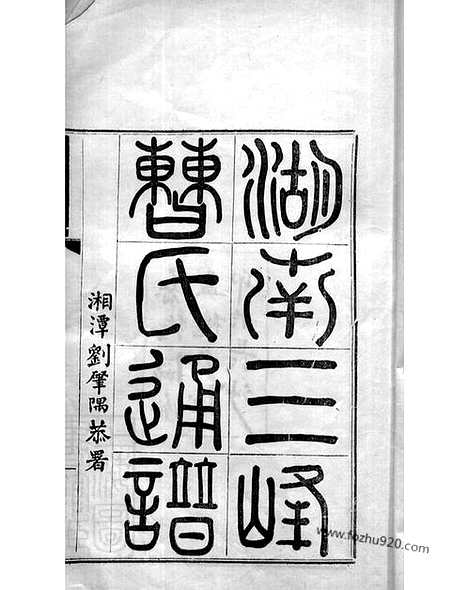 湖南三峰
曹氏通譜
湘潭劉肇隅恭署
www.fozhu920.com